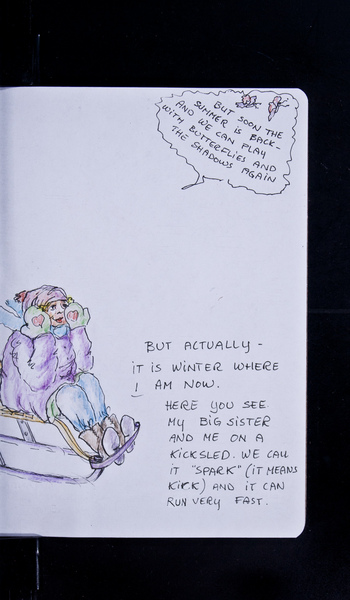 BUT SOON THE
SUMMER IS BACK-
AND WE CAN PLAY
WITH BUTTERFLIES AND
THE SHADOWS AGAIN
BUT ACTUALLY -
IT IS WINTER WHERE
I AM NOW.
HERE YOU SEE
MY BIG SISTER
AND ME ON A
KICKSLED. WE CALL
IT "SPARK" (IT MEANS
KICK) AND IT CAN
RUN VERY FAST.